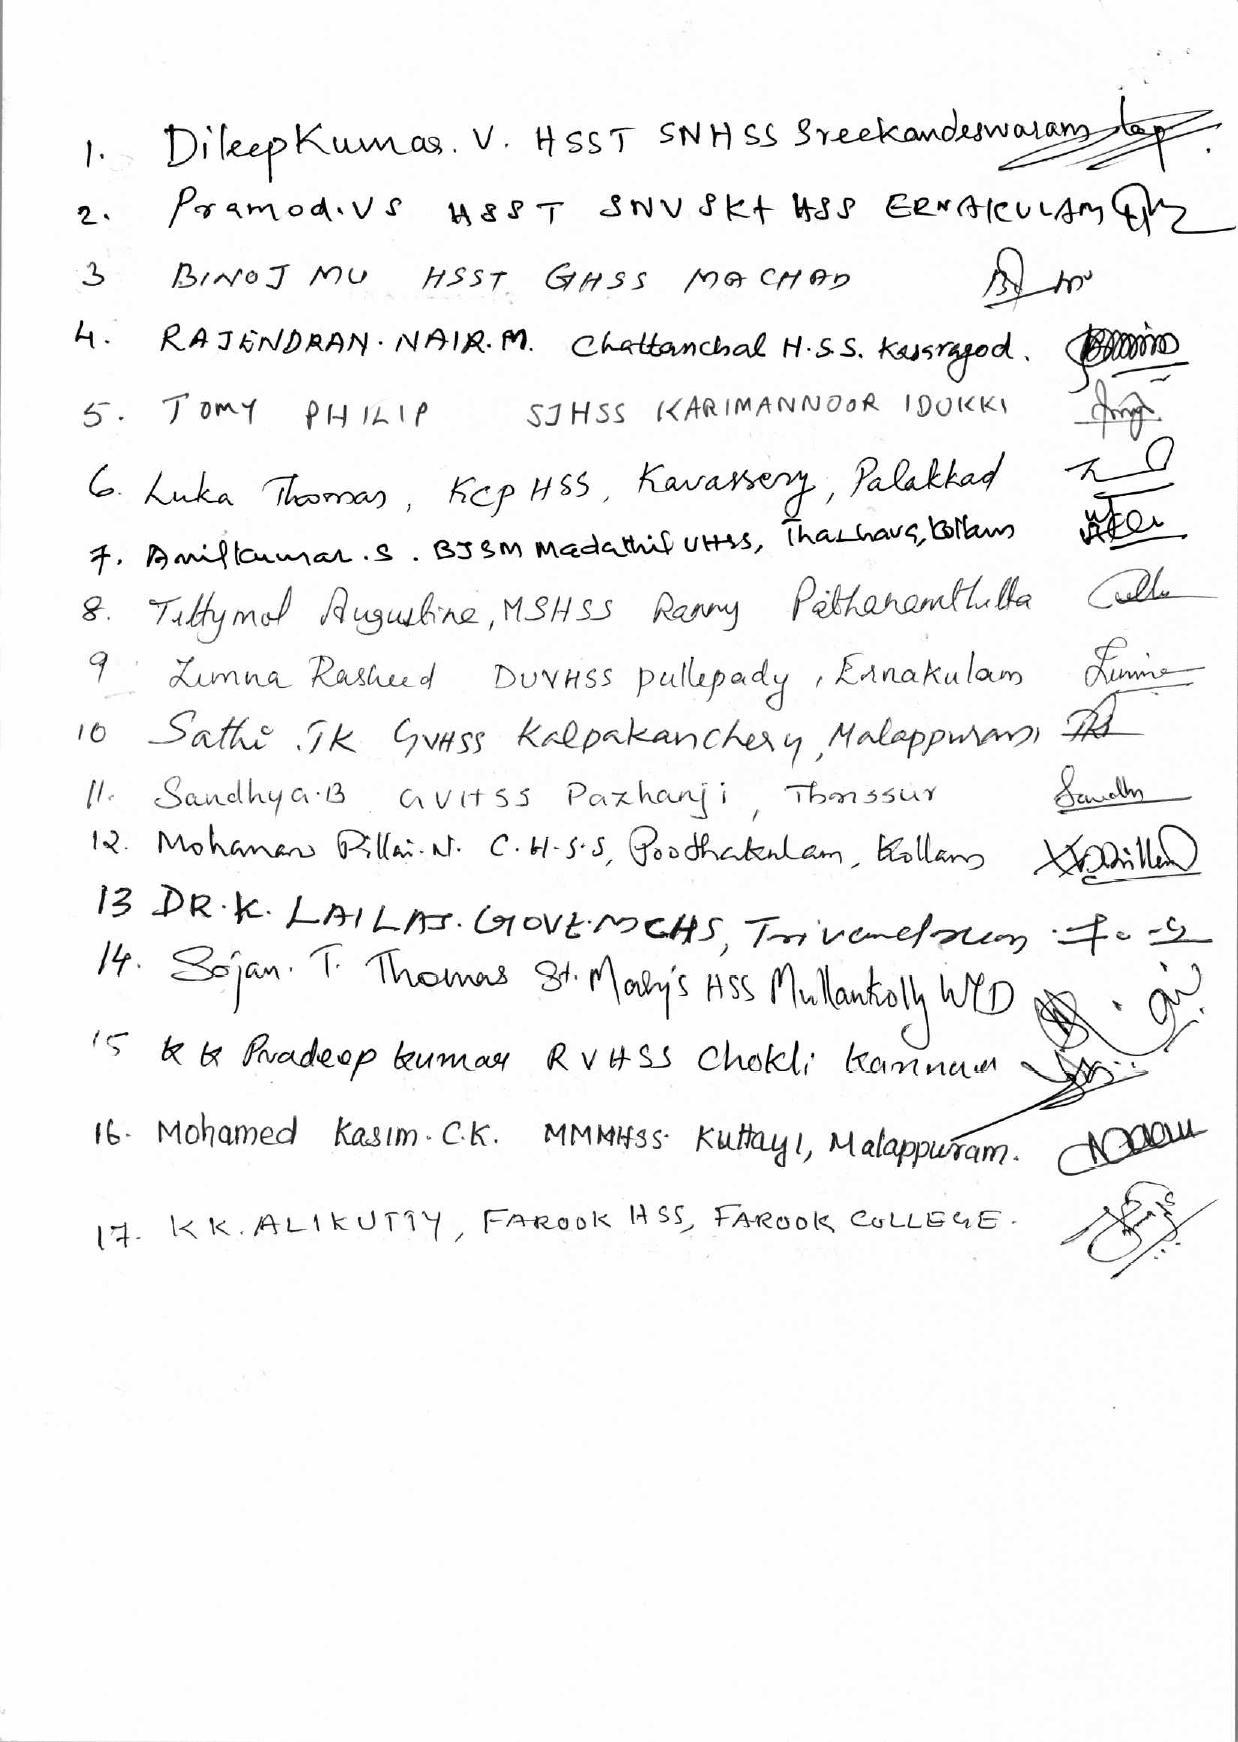 1. Dileep Kumar. V. HSST SNHSS Sreekandeswaram
2. Pramod. V S HSST SNV SKT HSS ERNAKULAM
3 BINOJ MU HSST GHSS MACHAD
4. RAJENDRAN. NAIR. M. Chattanchal H.S.S. Kasaragod.
5. TOMY PHILIP SJHSS KARIMANNOOR IDUKKI
6. Luka Thomas, KCP HSS, Kavassery, Palakkad
7. Anilkumar. S. BJSM Madathil VHSS, Thazhava, Kollam
8. Tittymol Augustine, MSHSS Ranny Pathanamthitta
9 Zimna Rasheed DUVHSS pullepady, Ernakulam
10 Sathi. TK GVHSS Kalpakanchery, Malappuram
11. Sandhya. B GVHSS Pazhanji, Thrissur
12. Mohanan Pillai. N. C.H.S.S, Poothakulam, Kollam
13 DR. K. LAILAS. GOVT. MCHS, Trivandrum
14. Sojan. T. Thomas St. Mary's HSS Mullankolly WYD
15 K K Pradeep kumar RVHSS Chokli Kannur
16. Mohamed Kasim. C.K. MMMHSS Kuttayi, Malappuram.
17. K K. ALIKUTTY, FAROOK HSS, FAROOK COLLEGE.